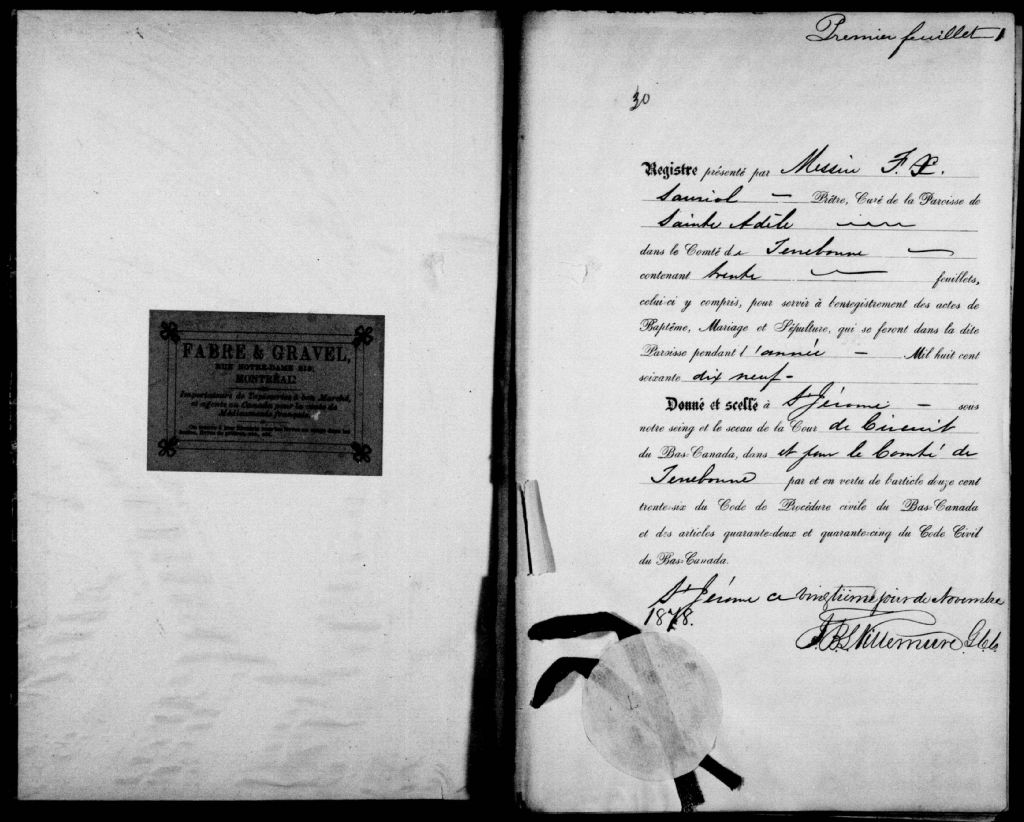 FABRE & GRAVEL,
RUE NOTRE-DAME 219,
MONTRÉAL:
Importateurs de Tapisseries à bon Marché,
et agents au Canada, pour la vente de
Médicaments français.
Premier feuillet 1
30
Registre présenté par Messire F. X.
Sauriol — Prêtre, Curé de la Paroisse de
Sainte Adèle
dans le Comté de Terrebonne —
contenant trente — feuillets,
celui-ci y compris, pour servir à l'enregistrement des actes de
Baptême, Mariage et Sépulture, qui se feront dans la dite
Paroisse pendant l'année — Mil huit cent
soixante dix neuf -
Donné et scellé à St Jérome — sous
notre seing et le sceau de la Cour de Circuit
du Bas-Canada, dans et pour le Comté de
Terrebonne par et en vertu de l'article douze cent
trente-six du Code de Procédure civile du Bas-Canada
et des articles quarante-deux et quarante-cinq du Code Civil
du Bas-Canada.
St Jérome ce vingtième jour de Novembre
1878.